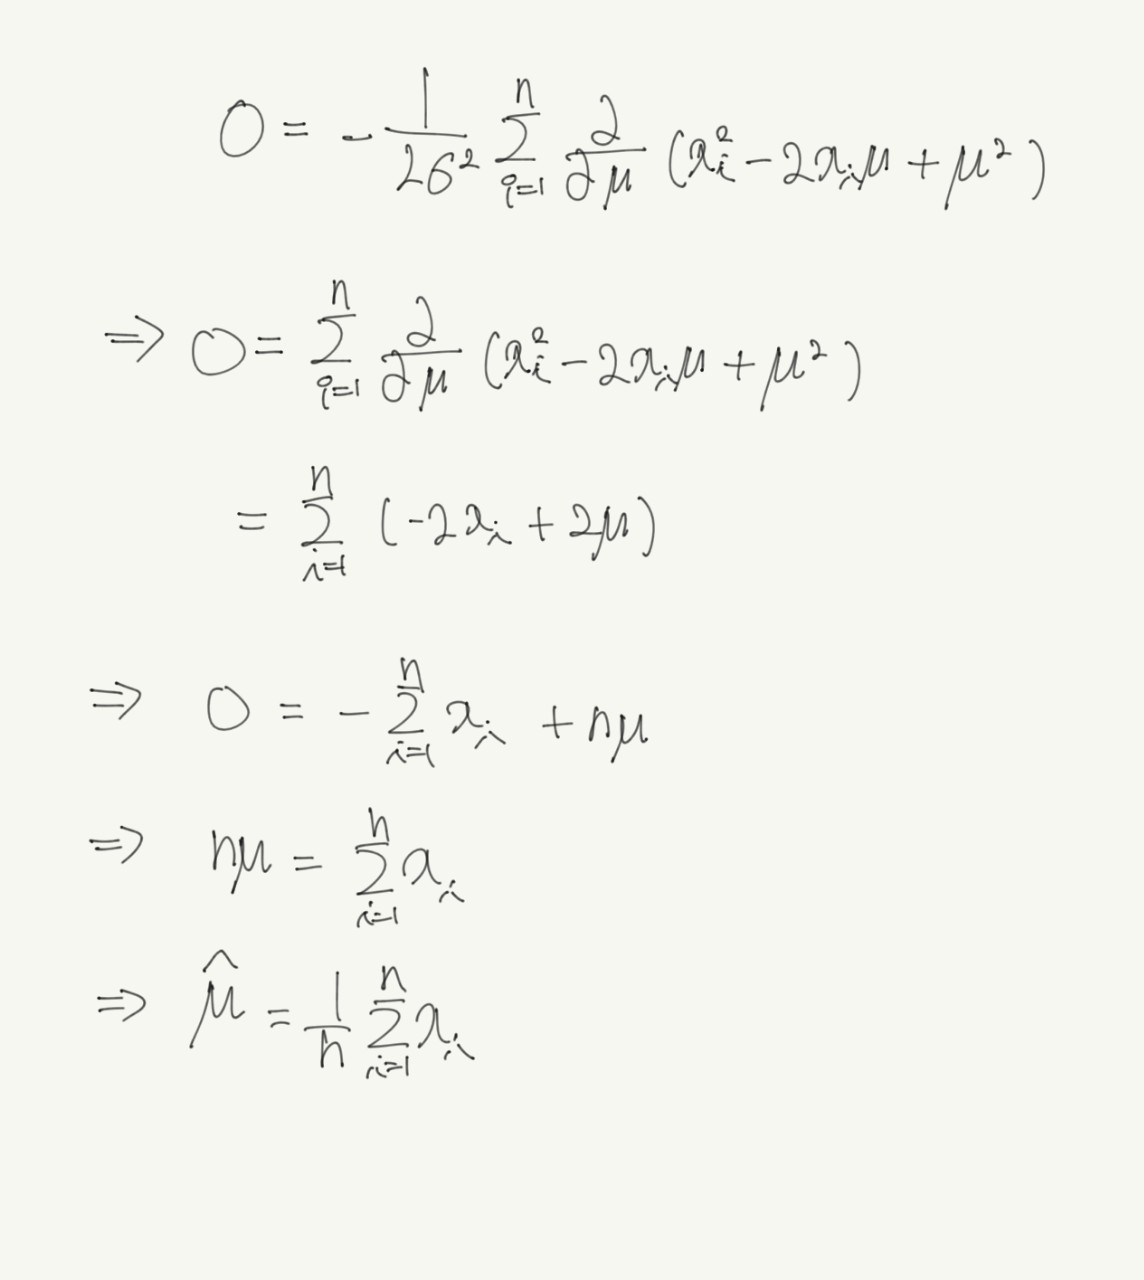 0 = -\frac{1}{2σ^2} \sum_{i=1}^{n} \frac{∂}{∂μ} (x_i^2 - 2x_iμ + μ^2)
⇒ 0 = \sum_{i=1}^{n} \frac{∂}{∂μ} (x_i^2 - 2x_iμ + μ^2)
= \sum_{i=1}^{n} (-2x_i + 2μ)
⇒ 0 = -\sum_{i=1}^{n} x_i + nμ
⇒ nμ = \sum_{i=1}^{n} x_i
⇒ \hat{μ} = \frac{1}{n} \sum_{i=1}^{n} x_i